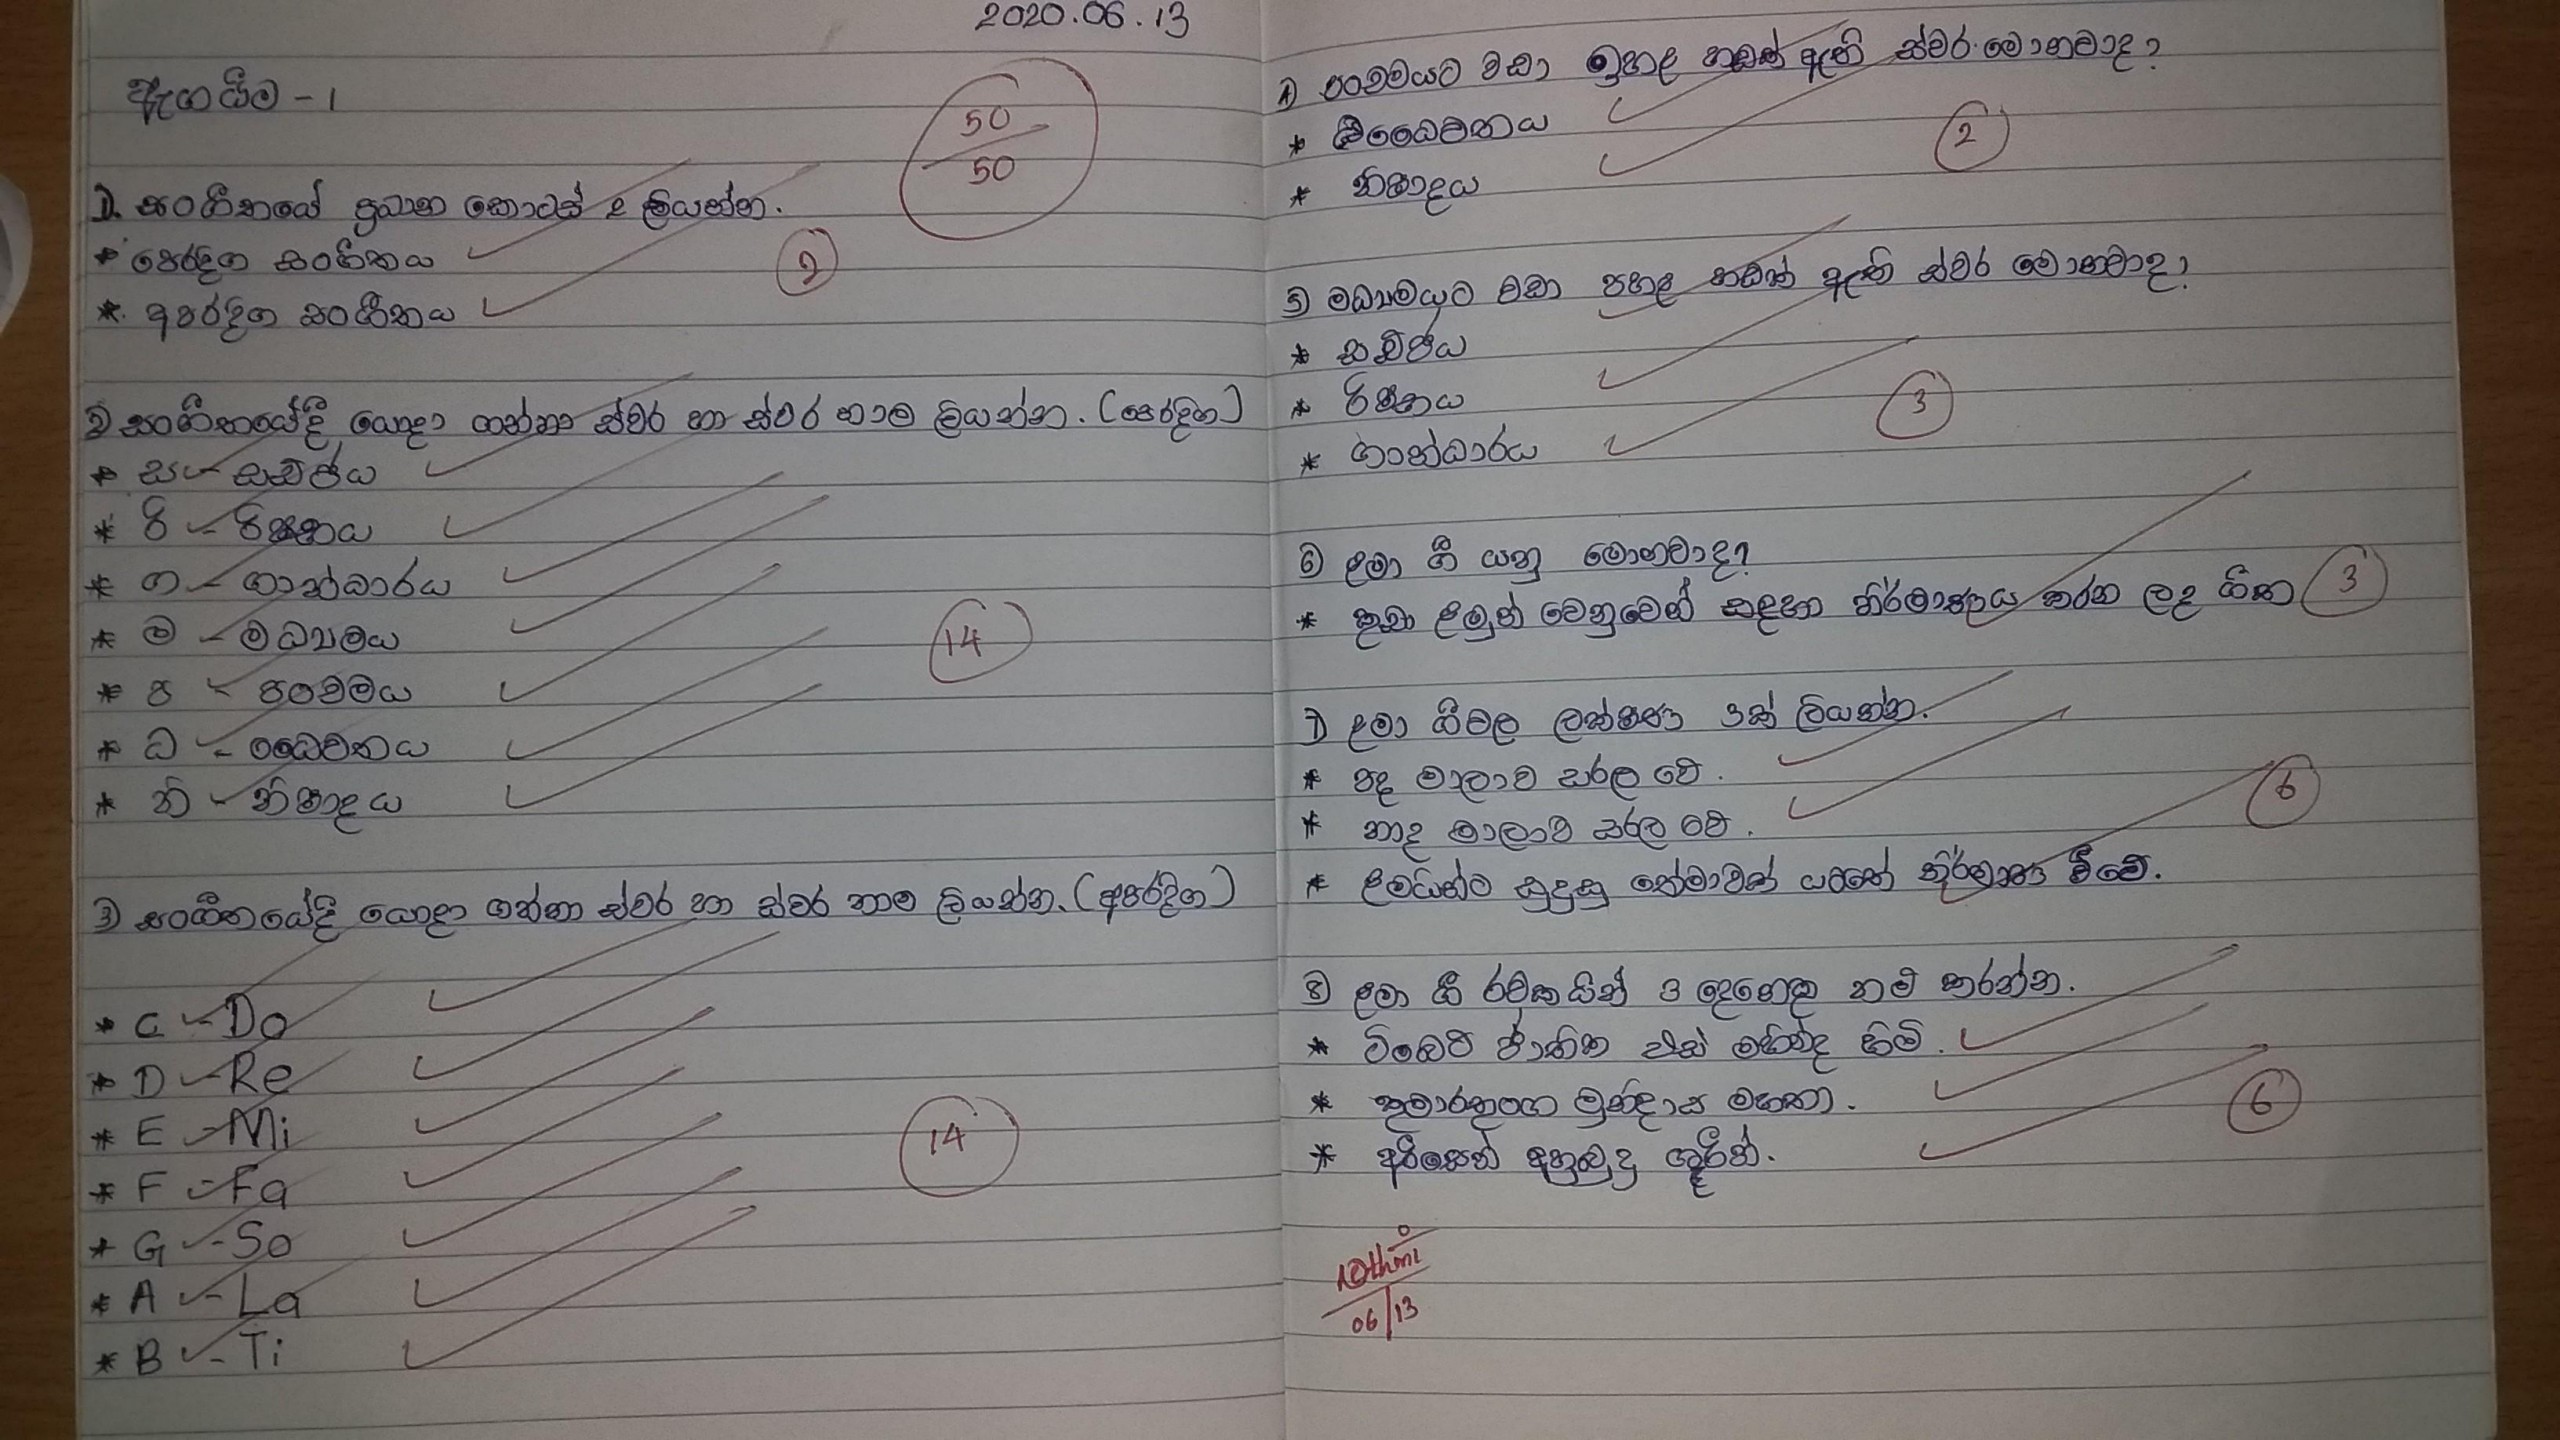 2020.06.13
ඇගයීම - 1
50
50
1) සංගීතයේ ප්‍රධාන කොටස් 2 ලියන්න.
* පෙරදිග සංගීතය
2
* අපරදිග සංගීතය
2) සංගීතයේදී යොදා ගන්නා ස්වර හා ස්වර නාම ලියන්න. (පෙරදිග)
* ස - සඩ්ජය
* රි - රිෂභය
* ග - ගාන්ධාරය
* ම - මධ්‍යමය
14
* ප - පංචමය
* ධ - ධෛවතය
* නි - නිෂාදය
3) සංගීතයේදී යොදා ගන්නා ස්වර හා ස්වර නාම ලියන්න. (අපරදිග)
* C - Do
* D - Re
* E - Mi
14
* F - Fa
* G - So
* A - La
* B - Ti
4) පංචමයට වඩා ඉහළ නාදයක් ඇති ස්වර මොනවාද?
* ධෛවතය
2
* නිෂාදය
5) මධ්‍යමයට වඩා පහළ නාදයක් ඇති ස්වර මොනවාද?
* සඩ්ජය
* රිෂභය
3
* ගාන්ධාරය
6) ළමා ගී යනු මොනවාද?
* කුඩා ළමුන් වෙනුවෙන් සඳහා නිර්මාණය කරන ලද ගීත
3
7) ළමා ගීවල ලක්ෂණ 3ක් ලියන්න.
* පද මාලාව සරල වේ.
6
* නාද මාලාව සරල වේ.
* ළමයින්ට සුදුසු තේමාවක් යටතේ නිර්මාණ වීමේ.
8) ළමා ගී රචකයින් 3 දෙනෙක් නම් කරන්න.
* ටිබෙට් ජාතික එස් මහින්ද හිමි.
* කුමාරතුංග මුනිදාස මහතා.
6
* අරිසෙන් අහුබුදු ශූරීන්.
06/13